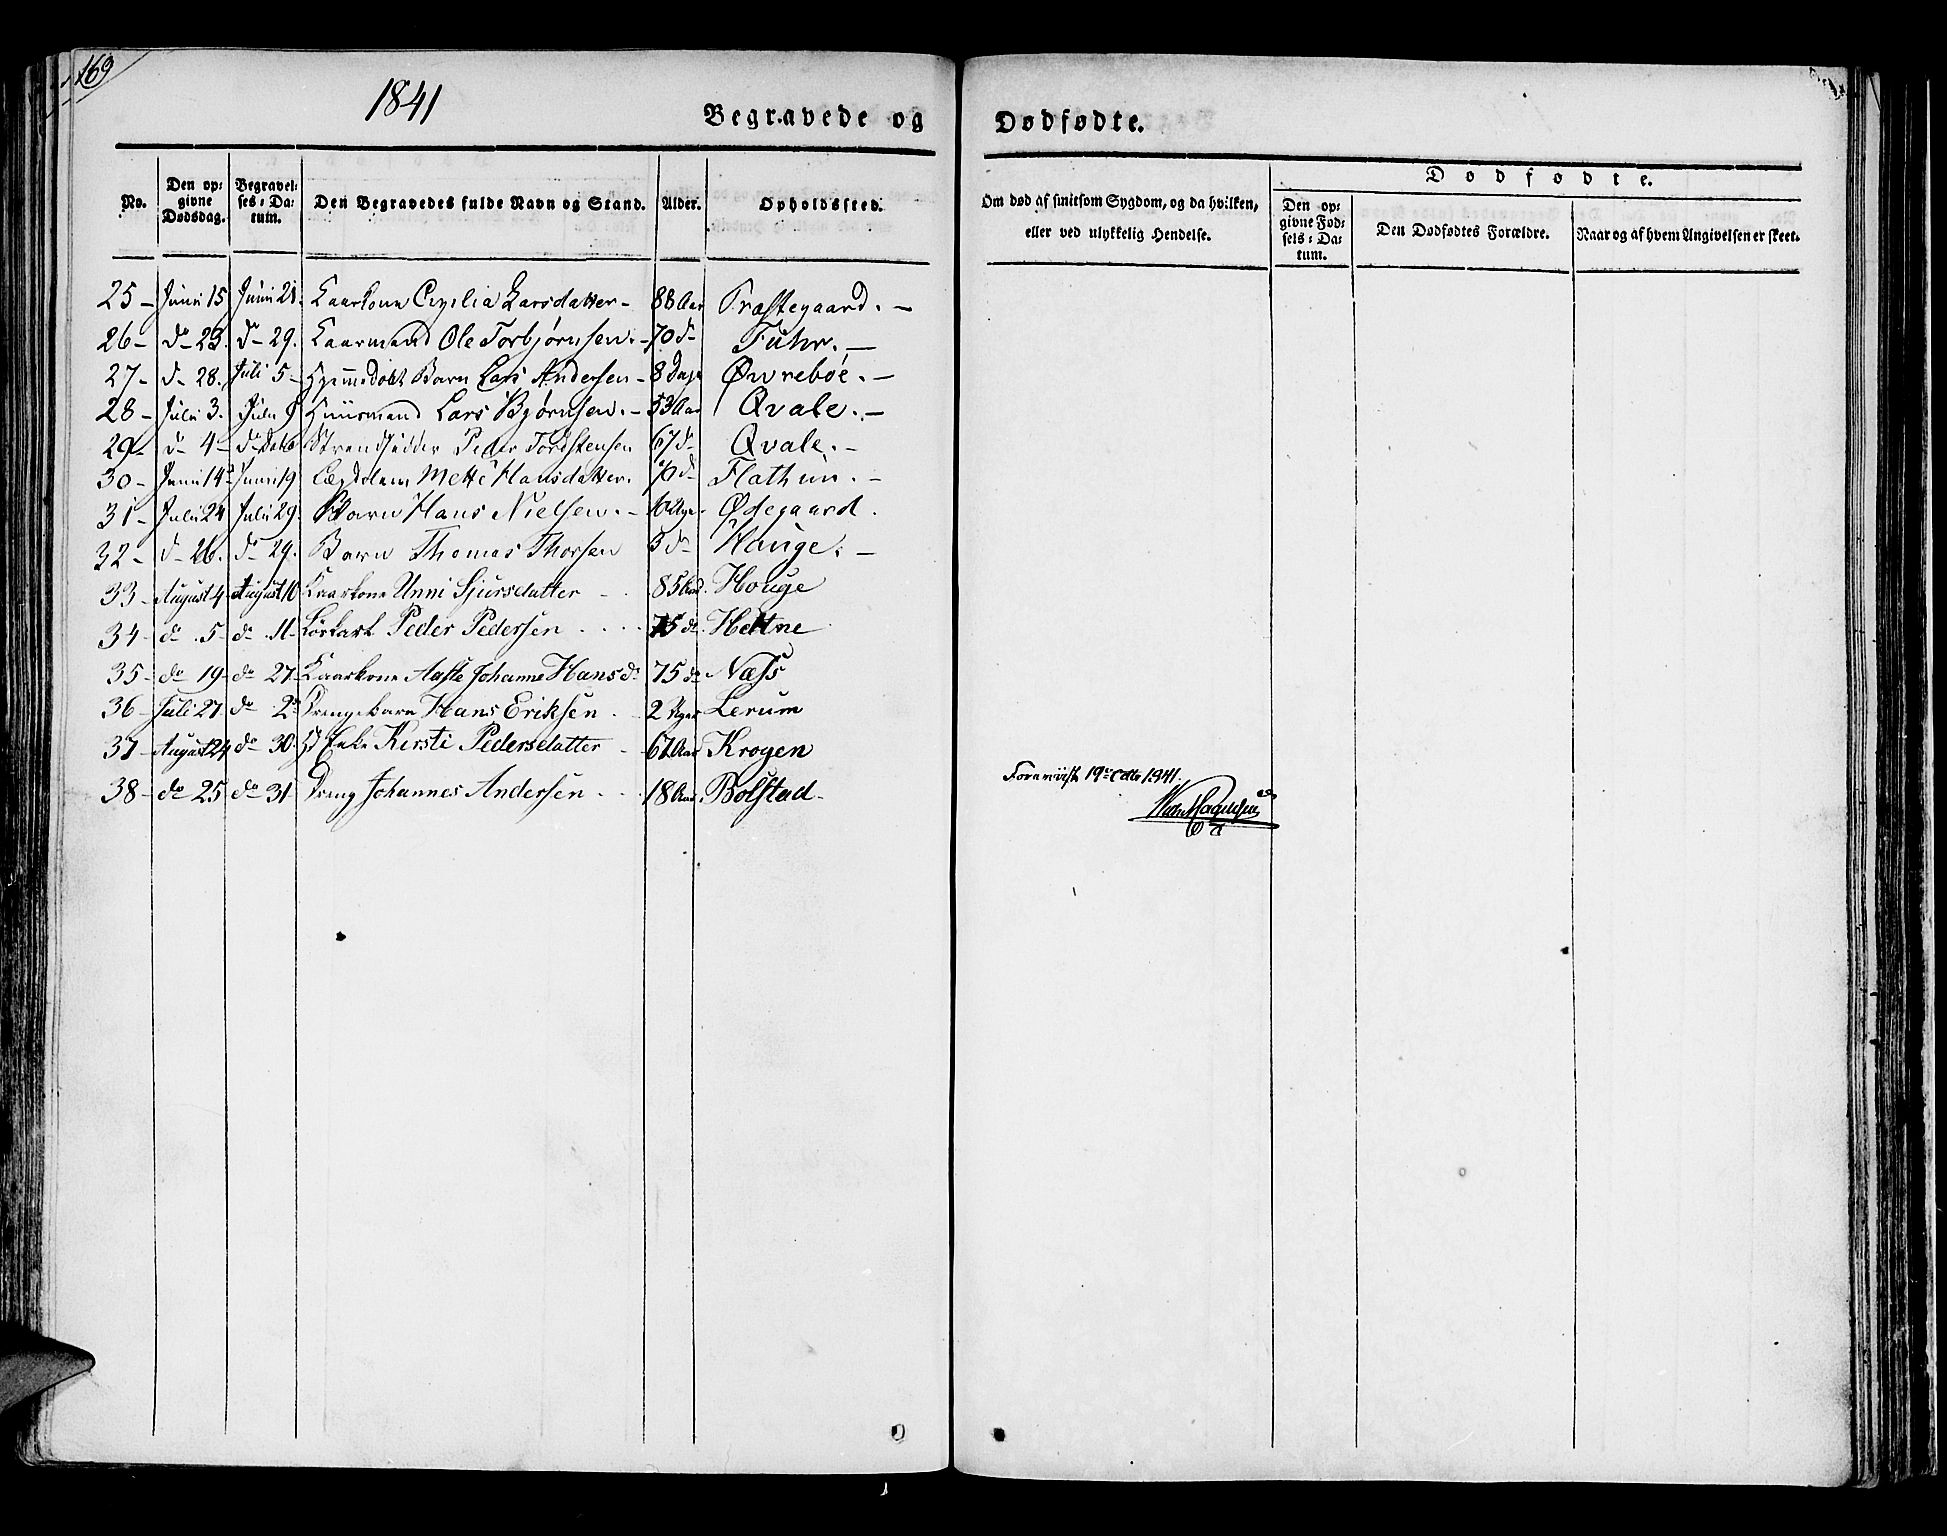 169
1841
Begravede og Dødfødte.
No. Den opgivne Dødsdag. Begravelses-Datum. Den Begravedes fulde Navn og Stand. Alder. Opholdssted. Om død af smitsom Sygdom, og da hvilken, eller ved ulykkelig Hendelse. Dødfødte.
Den opgivne Fødsels-Datum. Den Dødfødtes Forældre. Naar og af hvem Angivelsen er skeet.
25 - Juni 15 Juni 21. Kaarkone Cecilia Larsdatter - 88 Aar Præstegaard. -
26 - do 23. do 29. Kaarmand Ole Torbjørnsen. - 70 do Fuhr. -
27 - do 28. Juli 5 - Hjemmedøbt Barn Lars Andersen - 8 Dage Øvrebøe. -
28 - Juli 3. Juli 9 Huusmand Lars Bjørnsen. - 53 Aar Qvale. -
29 - do 4 - do Strandsidder Peder Torstensen 67 do Qvale. -
30 - Juni 14 Juni 19 Mette Hansdatter. do Flathun. -
31 - Juli 24 Juli 29. Barn Hans Nielsen. - 6 Uger Ødegaard.
32 - do 26. do 29. Barn Thomas Thorsen 3 do Hauge. -
33 - August 4 - August 10 Kaarkone Unni Sjursdatter - 85 Aar. Houge
34 - do 5 - do 11 - Løskarl Peder Pedersen 75 do Hettne
35 - do 19 - do 27 - Kaarkone Aaste Johanne Hansdr 75 do Næss
36 - Juli 27 do 2 Drengebarn Hans Eriksen 2 Uger Lerum
37 - August 24 do 30. Enke Kirsti Pedersdatter - 67 Aar Krogen
38 - do 25 do 31 Dreng Johannes Andersen 18 Aar. Bolstad -
Foreviist 19de Octb 1841.